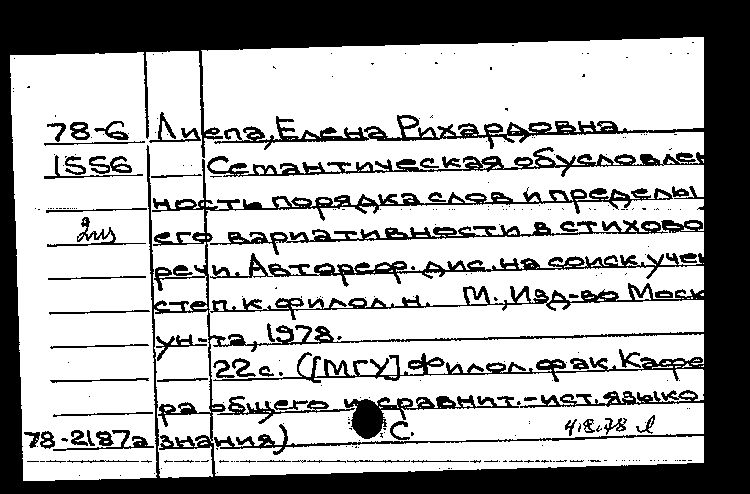 78-6 Лиепа, Елена Рихардовна.
1556 Семантическая обусловлен
ность порядка слов и пределы
2из его вариативности в стихово
речи. Автореф. дис. на соиск. учен
степ. к. филол. н. М., Изд-во Моск
ун-та, 1978.
22 с. ([МГУ]. Филол. фак. Кафе
ра общего и сравнит.-ист. языко
78-2187а знания)
С. 4.8.78